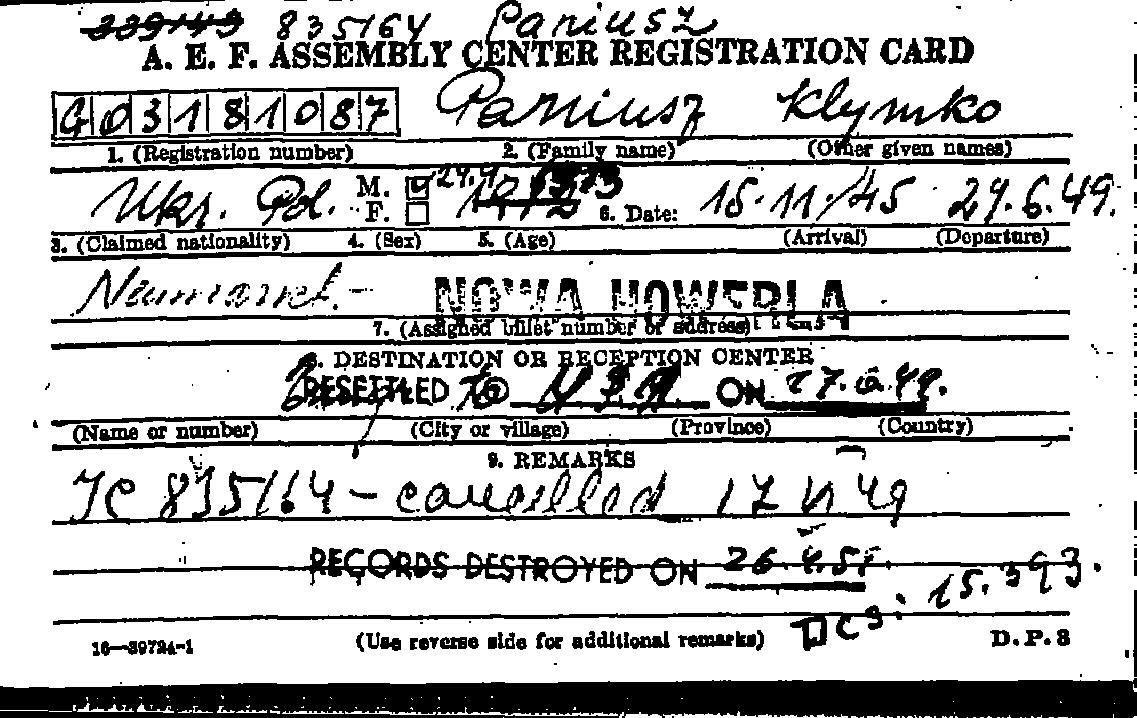 339149 835164 Paniusz
A. E. F. ASSEMBLY CENTER REGISTRATION CARD
G03181087 Paniusz Klymko
1. (Registration number) 2. (Family name) (Other given names)
Ukr. Pol. M. F. 6. Date: 15.11/45 29.6.49.
3. (Claimed nationality) 4. (Sex) 5. (Age) (Arrival) (Departure)
Neumarkt.- NOWA HOWERLA
7. (Assigned billet number or address)
8. DESTINATION OR RECEPTION CENTER
RESETTLED TO ON 27.6.49.
(Name or number) (City or village) (Province) (Country)
9. REMARKS
JC 835164 - cancelled 17 VI 49
RECORDS DESTROYED ON 26.4.51.
DCS: 15.393.
16-39724-1 (Use reverse side for additional remarks) D.P.3